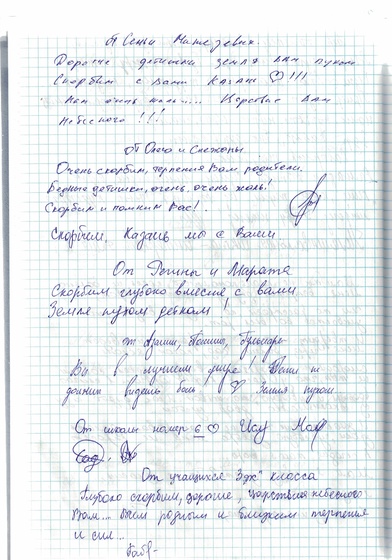 От Семьи
Дорогие детишки земля вам пухом
Скорбим с вами Казань ♡!!!
Нам очень жаль..... Царствие вам
Небесного!!!
От Олега и Снежаны
Очень скорбим, терпения Вам, родители.
Бедные детишки, очень, очень жаль!
Скорбим и помним Вас!
Скорбим, Казань мы с Вами
От Регины и Марата
Скорбим глубоко вместе с вами.
Земля пухом деткам!
от
Вы в лучшем мире!
должны видеть боль ♡ Земля пухом
От школы номер 6 ♡
От учащихся 3 класса
Глубоко скорбим, дорогие, царствия небесного
Вам... Всем родным и близким терпения
и сил...